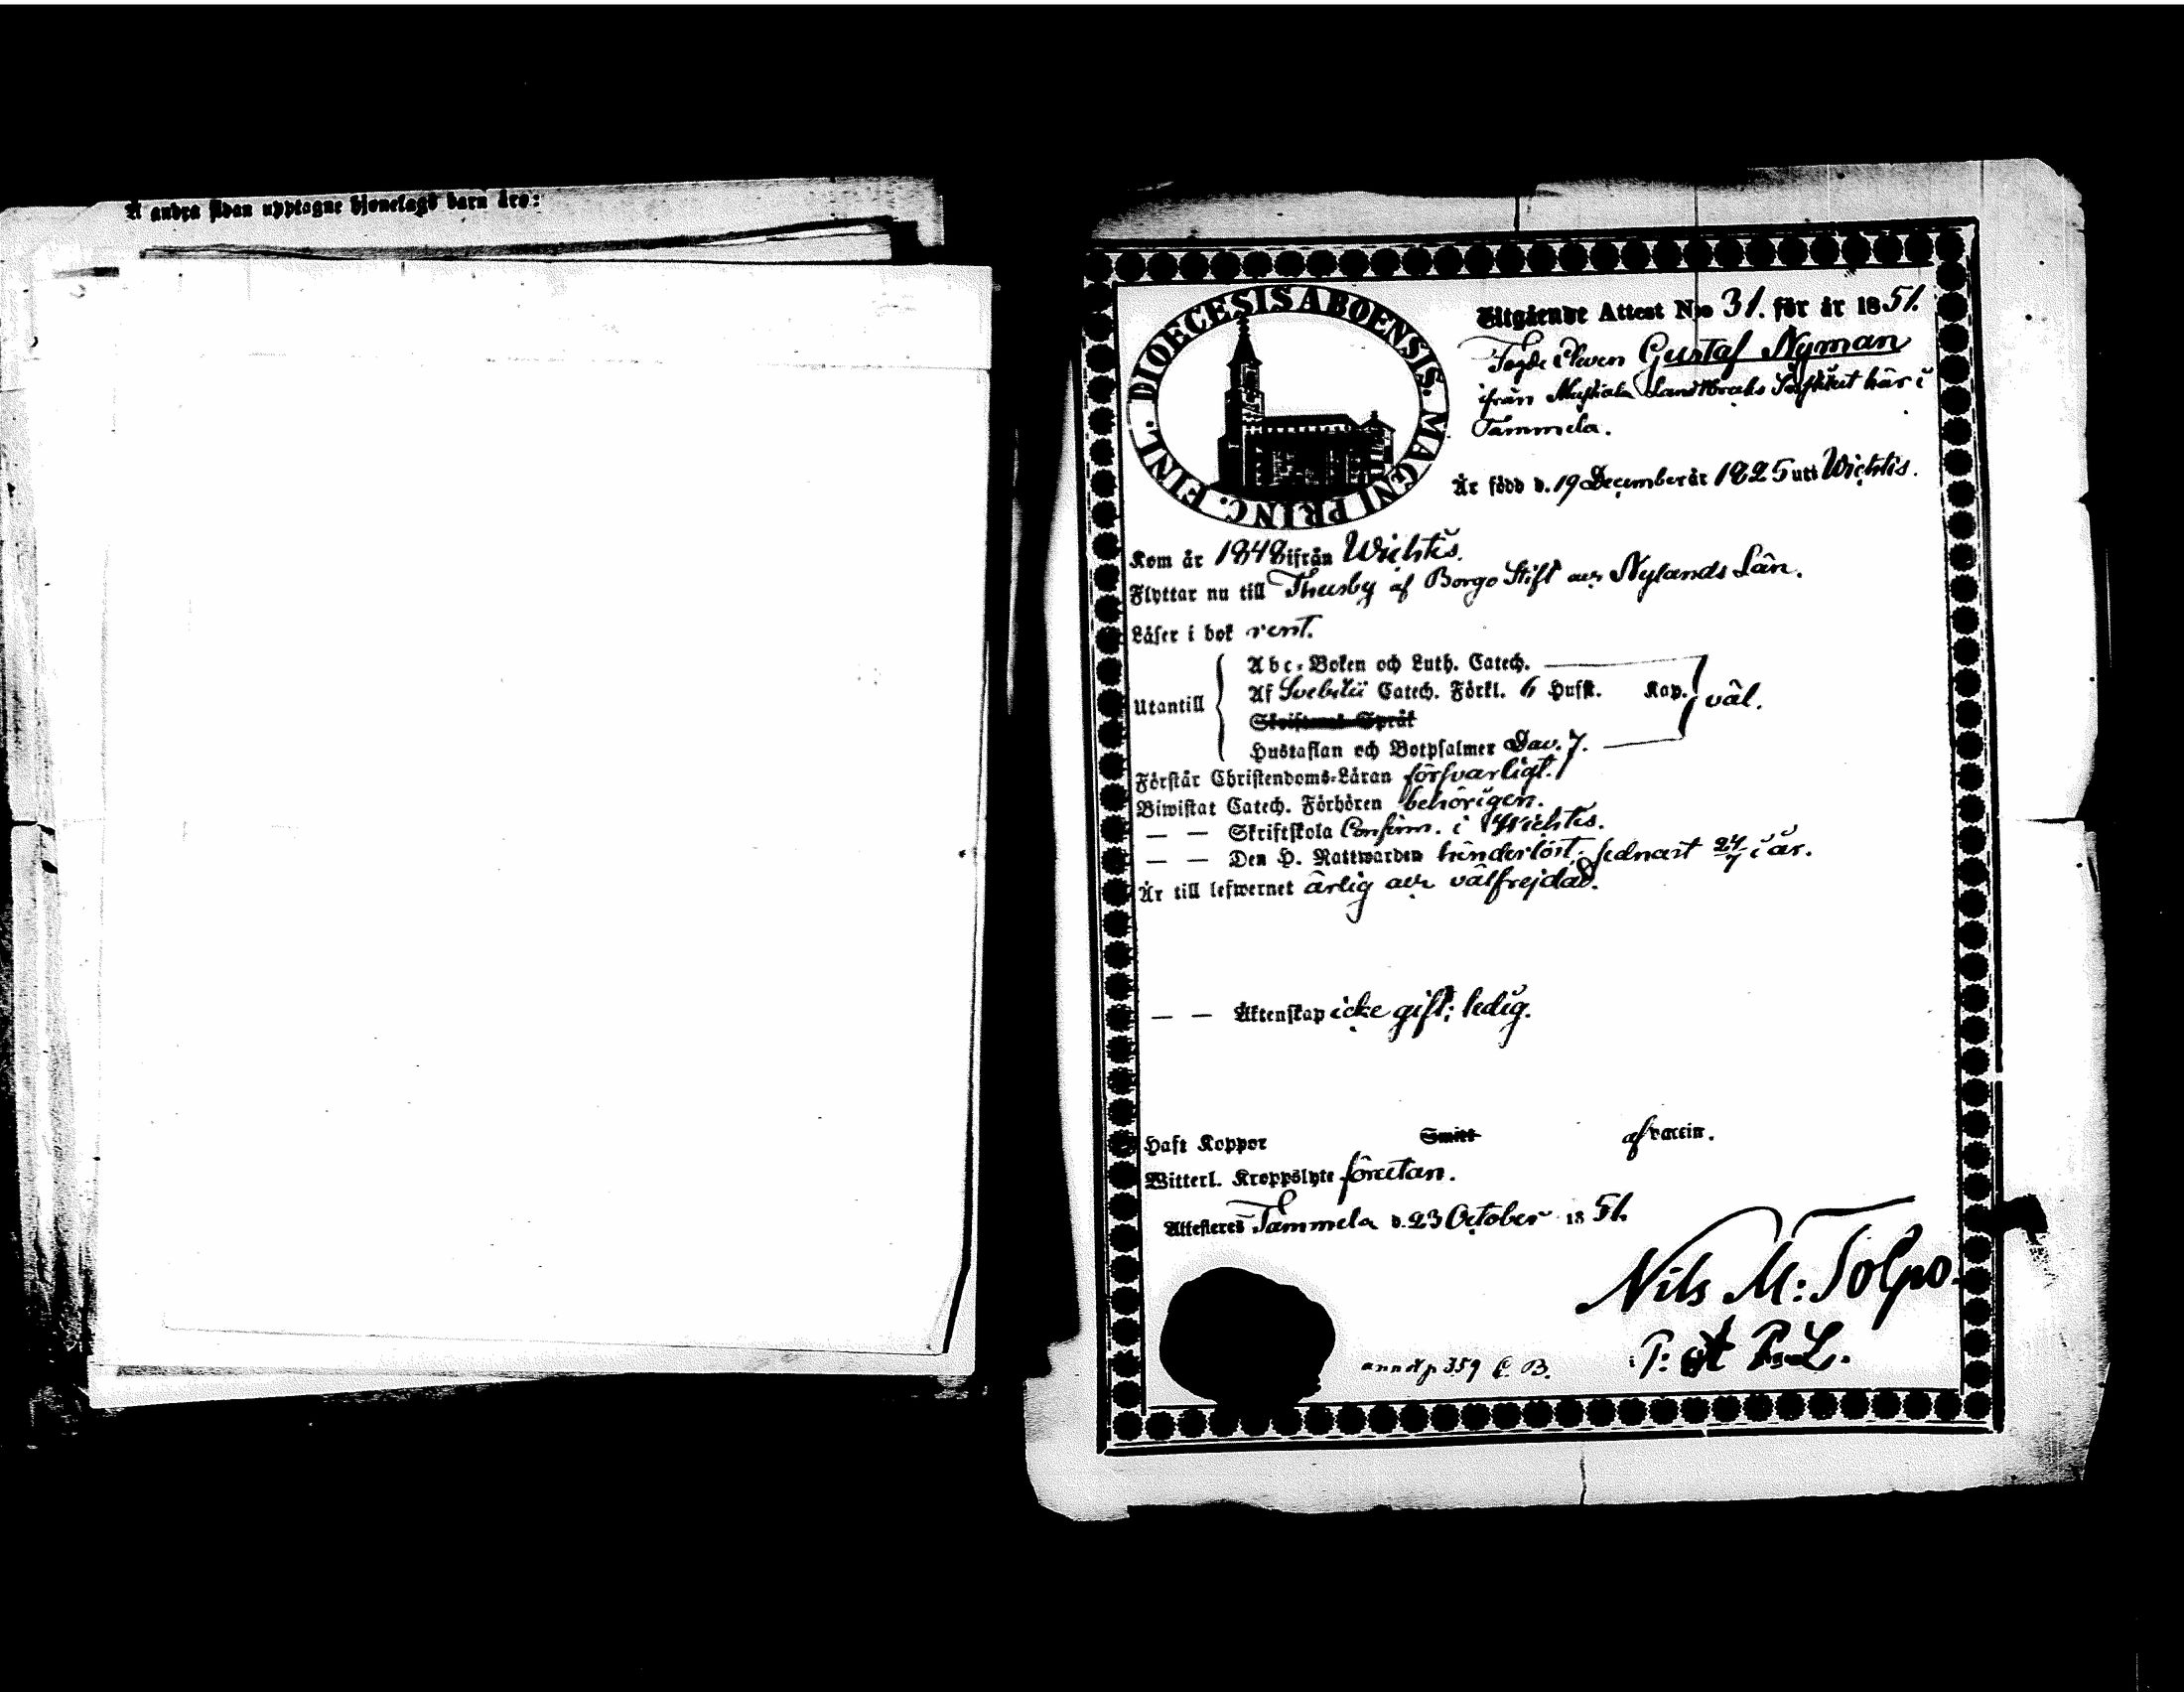 Å andra sidan upptagne hjonelags barn äro:
DIOECESIS ABOENSIS. MAGNI PRINC. FINL.
Utgående Attest N:o 31. för år 1851.
Fogde Eleven Gustaf Nyman
ifrån Mustiala Landtbruks Institut här i
Tammela.
Är född d. 19 December år 1825 uti Wichtis.
Kom år 1848 ifrån Wichtis.
Flyttar nu till Thusby af Borgo Stift och Nylands Län.
Läser i bok rent.
Utantill
Abc-Boken och Luth. Catech.
Af Svebilii Catech. Förkl. 6 Hufst. Kap.
Skriftens Språk
väl.
Hustaflan och Botpsalmer Dav. 7.
Förstår Christendoms-Läran försvarligt.
Biwistat Catech. Förhören behörigen.
— — Skriftskola Confirm. i Wichtis.
— — Den H. Nattwarden hinderlöst; sednast 24/7 i år.
Är till lefwernet ärlig och välfrejdad.
— — Äktenskap icke gift; ledig.
Haft Koppor Smitt af vaccin.
Witterl. Kroppslyte förutan.
Attesteres Tammela d. 23 October 1851.
Nils M: Tolpo.
P: et P. L.
annot p. 359 C. B.